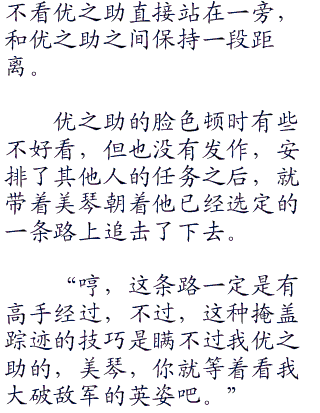 不看优之助直接站在一旁，
和优之助之间保持一段距
离。
优之助的脸色顿时有些
不好看，但也没有发作，安
排了其他人的任务之后，就
带着美琴朝着他已经选定的
一条路上追击了下去。
“哼，这条路一定是有
高手经过，不过，这种掩盖
踪迹的技巧是瞒不过我优之
助的，美琴，你就等着看我
大破敌军的英姿吧。”